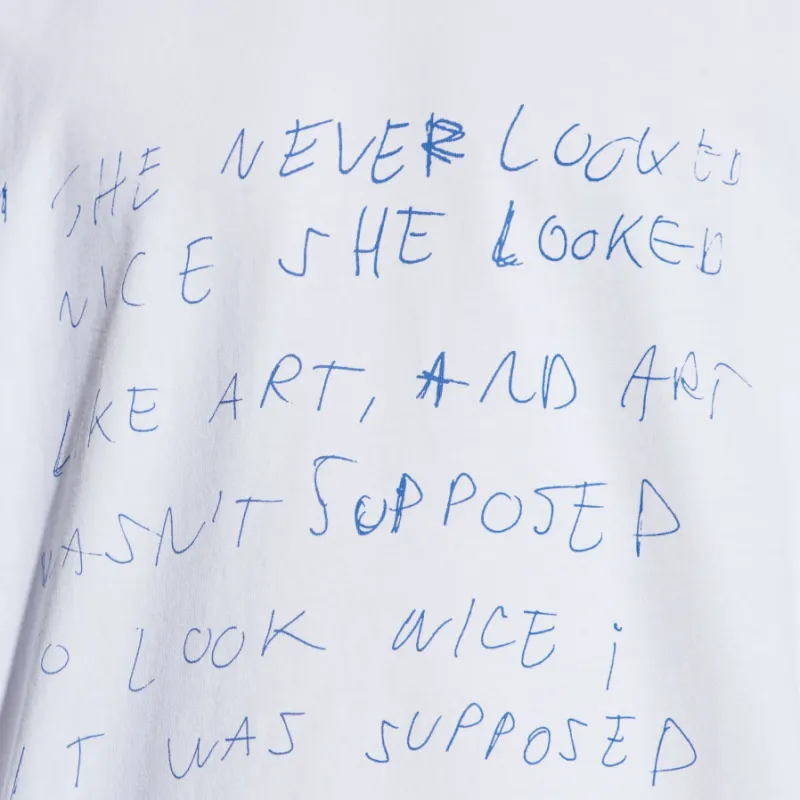 SHE NEVER LOOKED
NICE SHE LOOKED
LIKE ART, AND ART
WASN'T SUPPOSED
TO LOOK NICE;
IT WAS SUPPOSED